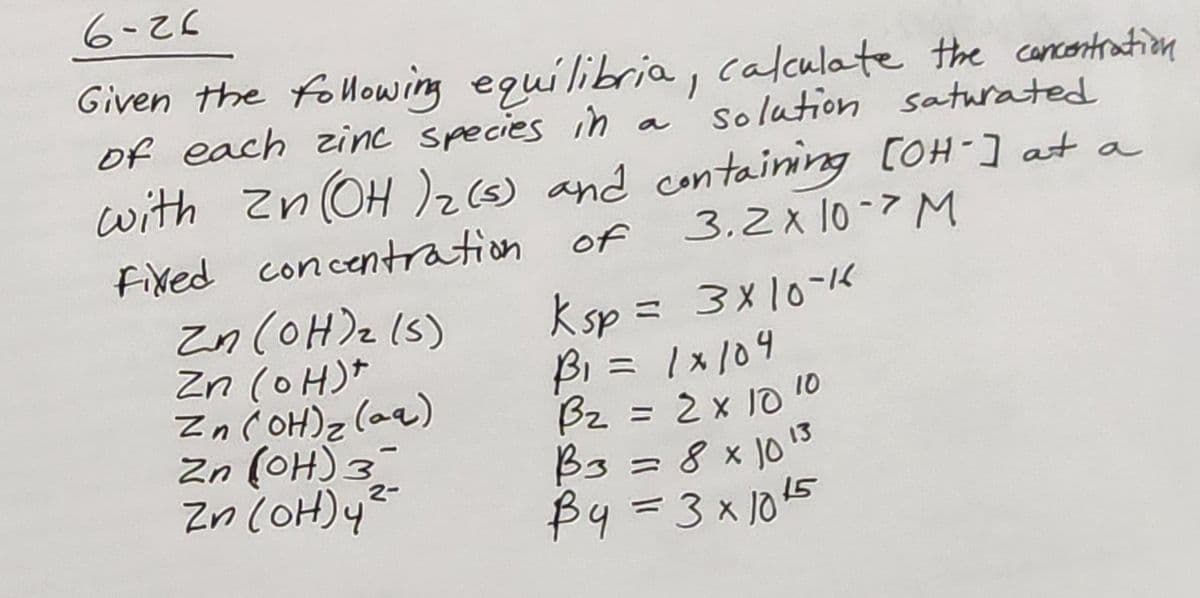 6-26
Given the following equilibria, calculate the concentration
of each zinc species in a solution saturated
with Zn(OH)2(s) and containing [OH-] at a
fixed concentration of 3.2 x 10-7 M
Zn(OH)2 (s) Ksp = 3 x 10-16
Zn (OH)+ β1 = 1 x 104
Zn(OH)2(aq) β2 = 2 x 10 10
Zn (OH)3- β3 = 8 x 10 13
Zn(OH)42- β4 = 3 x 10 15